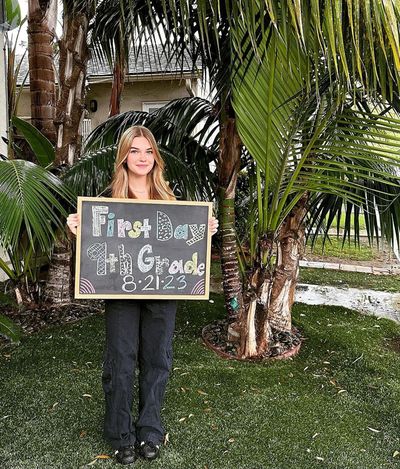 First Day
9th Grade
8.21.23